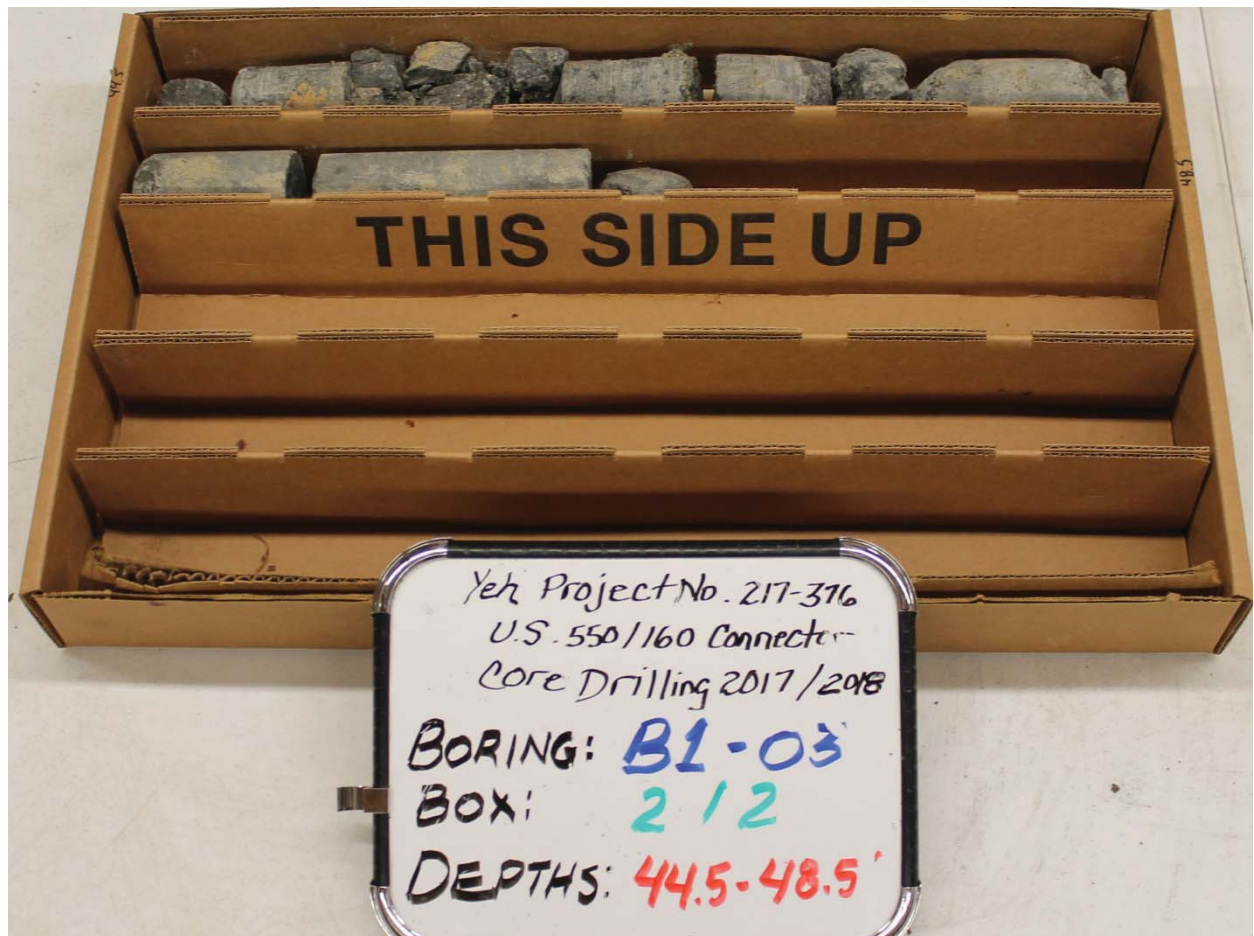 44.5
48.5
THIS SIDE UP
Yeh Project No. 217-376
U.S. 550/160 Connector
Core Drilling 2017/2018
BORING: B1-03
BOX: 2/2
DEPTHS: 44.5-48.5'